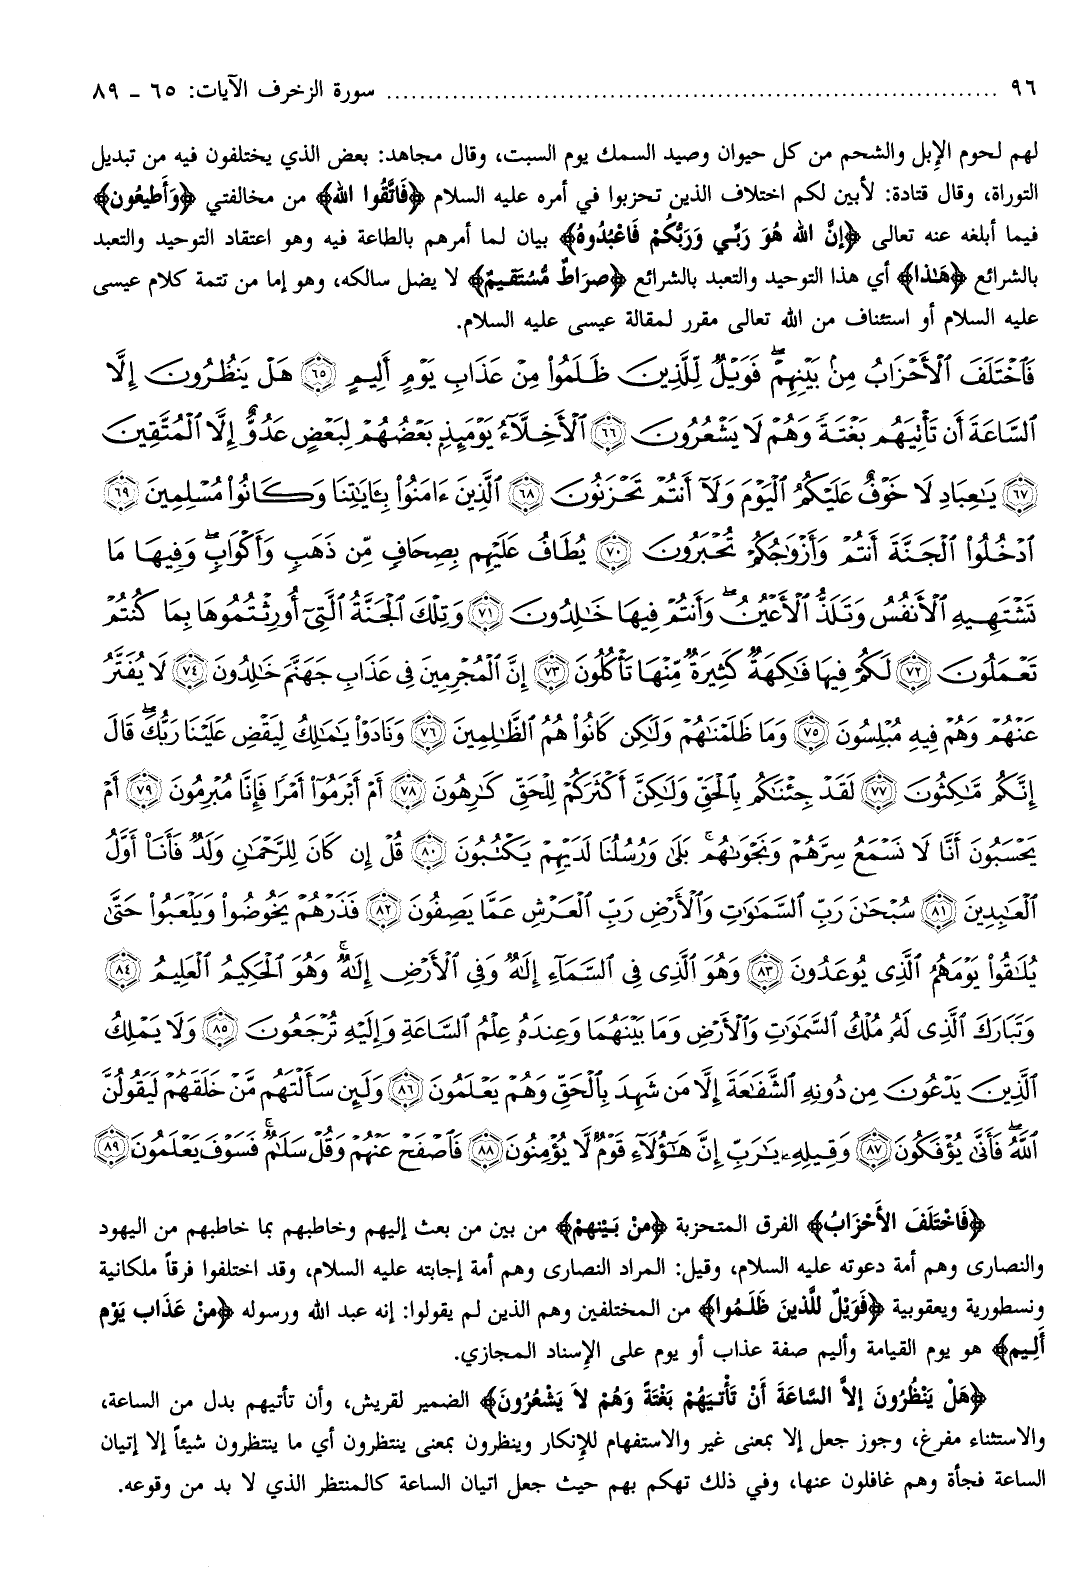 ٩٦ ........................................................................... سورة الزخرف الآيات: ٦٥ ـ ٨٩
لهم لحوم الإبل والشحم من كل حيوان وصيد السمك يوم السبت، وقال مجاهد: بعض الذي يختلفون فيه من تبديل
التوراة، وقال قتادة: لأبين لكم اختلاف الذين تحزبوا في أمره عليه السلام ﴿فَاتَّقُوا الله﴾ من مخالفتي ﴿وَأَطيعُون﴾
فيما أبلغه عنه تعالى ﴿إنَّ الله هُوَ رَبِّي وَرَبُّكُمْ فَاعْبُدُوهُ﴾ بيان لما أمرهم بالطاعة فيه وهو اعتقاد التوحيد والتعبد
بالشرائع ﴿هَـٰذا﴾ أي هذا التوحيد والتعبد بالشرائع ﴿صرَاطٌ مُّسْتَقيمٌ﴾ لا يضل سالكه، وهو إما من تتمة كلام عيسى
عليه السلام أو استئناف من الله تعالى مقرر لمقالة عيسى عليه السلام.
فَٱخْتَلَفَ ٱلْأَحْزَابُ مِنۢ بَيْنِهِمْ ۖ فَوَيْلٌ لِّلَّذِينَ ظَلَمُوا۟ مِنْ عَذَابِ يَوْمٍ أَلِيمٍ ﴿٦٥﴾ هَلْ يَنظُرُونَ إِلَّا
ٱلسَّاعَةَ أَن تَأْتِيَهُم بَغْتَةً وَهُمْ لَا يَشْعُرُونَ ﴿٦٦﴾ ٱلْأَخِلَّآءُ يَوْمَئِذٍۭ بَعْضُهُمْ لِبَعْضٍ عَدُوٌّ إِلَّا ٱلْمُتَّقِينَ
﴿٦٧﴾ يَـٰعِبَادِ لَا خَوْفٌ عَلَيْكُمُ ٱلْيَوْمَ وَلَآ أَنتُمْ تَحْزَنُونَ ﴿٦٨﴾ ٱلَّذِينَ ءَامَنُوا۟ بِـَٔايَـٰتِنَا وَكَانُوا۟ مُسْلِمِينَ ﴿٦٩﴾
ٱدْخُلُوا۟ ٱلْجَنَّةَ أَنتُمْ وَأَزْوَٰجُكُمْ تُحْبَرُونَ ﴿٧٠﴾ يُطَافُ عَلَيْهِم بِصِحَافٍ مِّن ذَهَبٍ وَأَكْوَابٍ ۖ وَفِيهَا مَا
تَشْتَهِيهِ ٱلْأَنفُسُ وَتَلَذُّ ٱلْأَعْيُنُ ۖ وَأَنتُمْ فِيهَا خَـٰلِدُونَ ﴿٧١﴾ وَتِلْكَ ٱلْجَنَّةُ ٱلَّتِىٓ أُورِثْتُمُوهَا بِمَا كُنتُمْ
تَعْمَلُونَ ﴿٧٢﴾ لَكُمْ فِيهَا فَـٰكِهَةٌ كَثِيرَةٌ مِّنْهَا تَأْكُلُونَ ﴿٧٣﴾ إِنَّ ٱلْمُجْرِمِينَ فِى عَذَابِ جَهَنَّمَ خَـٰلِدُونَ ﴿٧٤﴾ لَا يُفَتَّرُ
عَنْهُمْ وَهُمْ فِيهِ مُبْلِسُونَ ﴿٧٥﴾ وَمَا ظَلَمْنَـٰهُمْ وَلَـٰكِن كَانُوا۟ هُمُ ٱلظَّـٰلِمِينَ ﴿٧٦﴾ وَنَادَوْا۟ يَـٰمَـٰلِكُ لِيَقْضِ عَلَيْنَا رَبُّكَ ۖ قَالَ
إِنَّكُم مَّـٰكِثُونَ ﴿٧٧﴾ لَقَدْ جِئْنَـٰكُم بِٱلْحَقِّ وَلَـٰكِنَّ أَكْثَرَكُمْ لِلْحَقِّ كَـٰرِهُونَ ﴿٧٨﴾ أَمْ أَبْرَمُوٓا۟ أَمْرًا فَإِنَّا مُبْرِمُونَ ﴿٧٩﴾ أَمْ
يَحْسَبُونَ أَنَّا لَا نَسْمَعُ سِرَّهُمْ وَنَجْوَىٰهُم ۚ بَلَىٰ وَرُسُلُنَا لَدَيْهِمْ يَكْتُبُونَ ﴿٨٠﴾ قُلْ إِن كَانَ لِلرَّحْمَـٰنِ وَلَدٌ فَأَنَا۠ أَوَّلُ
ٱلْعَـٰبِدِينَ ﴿٨١﴾ سُبْحَـٰنَ رَبِّ ٱلسَّمَـٰوَٰتِ وَٱلْأَرْضِ رَبِّ ٱلْعَرْشِ عَمَّا يَصِفُونَ ﴿٨٢﴾ فَذَرْهُمْ يَخُوضُوا۟ وَيَلْعَبُوا۟ حَتَّىٰ
يُلَـٰقُوا۟ يَوْمَهُمُ ٱلَّذِى يُوعَدُونَ ﴿٨٣﴾ وَهُوَ ٱلَّذِى فِى ٱلسَّمَآءِ إِلَـٰهٌ وَفِى ٱلْأَرْضِ إِلَـٰهٌ ۚ وَهُوَ ٱلْحَكِيمُ ٱلْعَلِيمُ ﴿٨٤﴾
وَتَبَارَكَ ٱلَّذِى لَهُۥ مُلْكُ ٱلسَّمَـٰوَٰتِ وَٱلْأَرْضِ وَمَا بَيْنَهُمَا وَعِندَهُۥ عِلْمُ ٱلسَّاعَةِ وَإِلَيْهِ تُرْجَعُونَ ﴿٨٥﴾ وَلَا يَمْلِكُ
ٱلَّذِينَ يَدْعُونَ مِن دُونِهِ ٱلشَّفَـٰعَةَ إِلَّا مَن شَهِدَ بِٱلْحَقِّ وَهُمْ يَعْلَمُونَ ﴿٨٦﴾ وَلَئِن سَأَلْتَهُم مَّنْ خَلَقَهُمْ لَيَقُولُنَّ
ٱللَّهُ ۖ فَأَنَّىٰ يُؤْفَكُونَ ﴿٨٧﴾ وَقِيلِهِۦ يَـٰرَبِّ إِنَّ هَـٰٓؤُلَآءِ قَوْمٌ لَّا يُؤْمِنُونَ ﴿٨٨﴾ فَٱصْفَحْ عَنْهُمْ وَقُلْ سَلَـٰمٌ ۚ فَسَوْفَ يَعْلَمُونَ ﴿٨٩﴾
﴿فَاخْتَلَفَ الأَحْزَابُ﴾ الفرق المتحزبة ﴿منْ بَيْنهمْ﴾ من بين من بعث إليهم وخاطبهم بما خاطبهم من اليهود
والنصارى وهم أمة دعوته عليه السلام، وقيل: المراد النصارى وهم أمة إجابته عليه السلام، وقد اختلفوا فرقاً ملكانية
ونسطورية ويعقوبية ﴿فَوَيْلٌ للَّذينَ ظَلَمُوا﴾ من المختلفين وهم الذين لم يقولوا: إنه عبد الله ورسوله ﴿منْ عَذَاب يَوْم
أَليم﴾ هو يوم القيامة وأليم صفة عذاب أو يوم على الإسناد المجازي.
﴿هَلْ يَنْظُرُونَ إلاَّ السَّاعَةَ أَنْ تَأْتيَهُمْ بَغْتَةً وَهُمْ لاَ يَشْعُرُونَ﴾ الضمير لقريش، وأن تأتيهم بدل من الساعة،
والاستثناء مفرغ، وجوز جعل إلا بمعنى غير والاستفهام للإنكار وينظرون بمعنى ينتظرون أي ما ينتظرون شيئاً إلا إتيان
الساعة فجأة وهم غافلون عنها، وفي ذلك تهكم بهم حيث جعل اتيان الساعة كالمنتظر الذي لا بد من وقوعه.